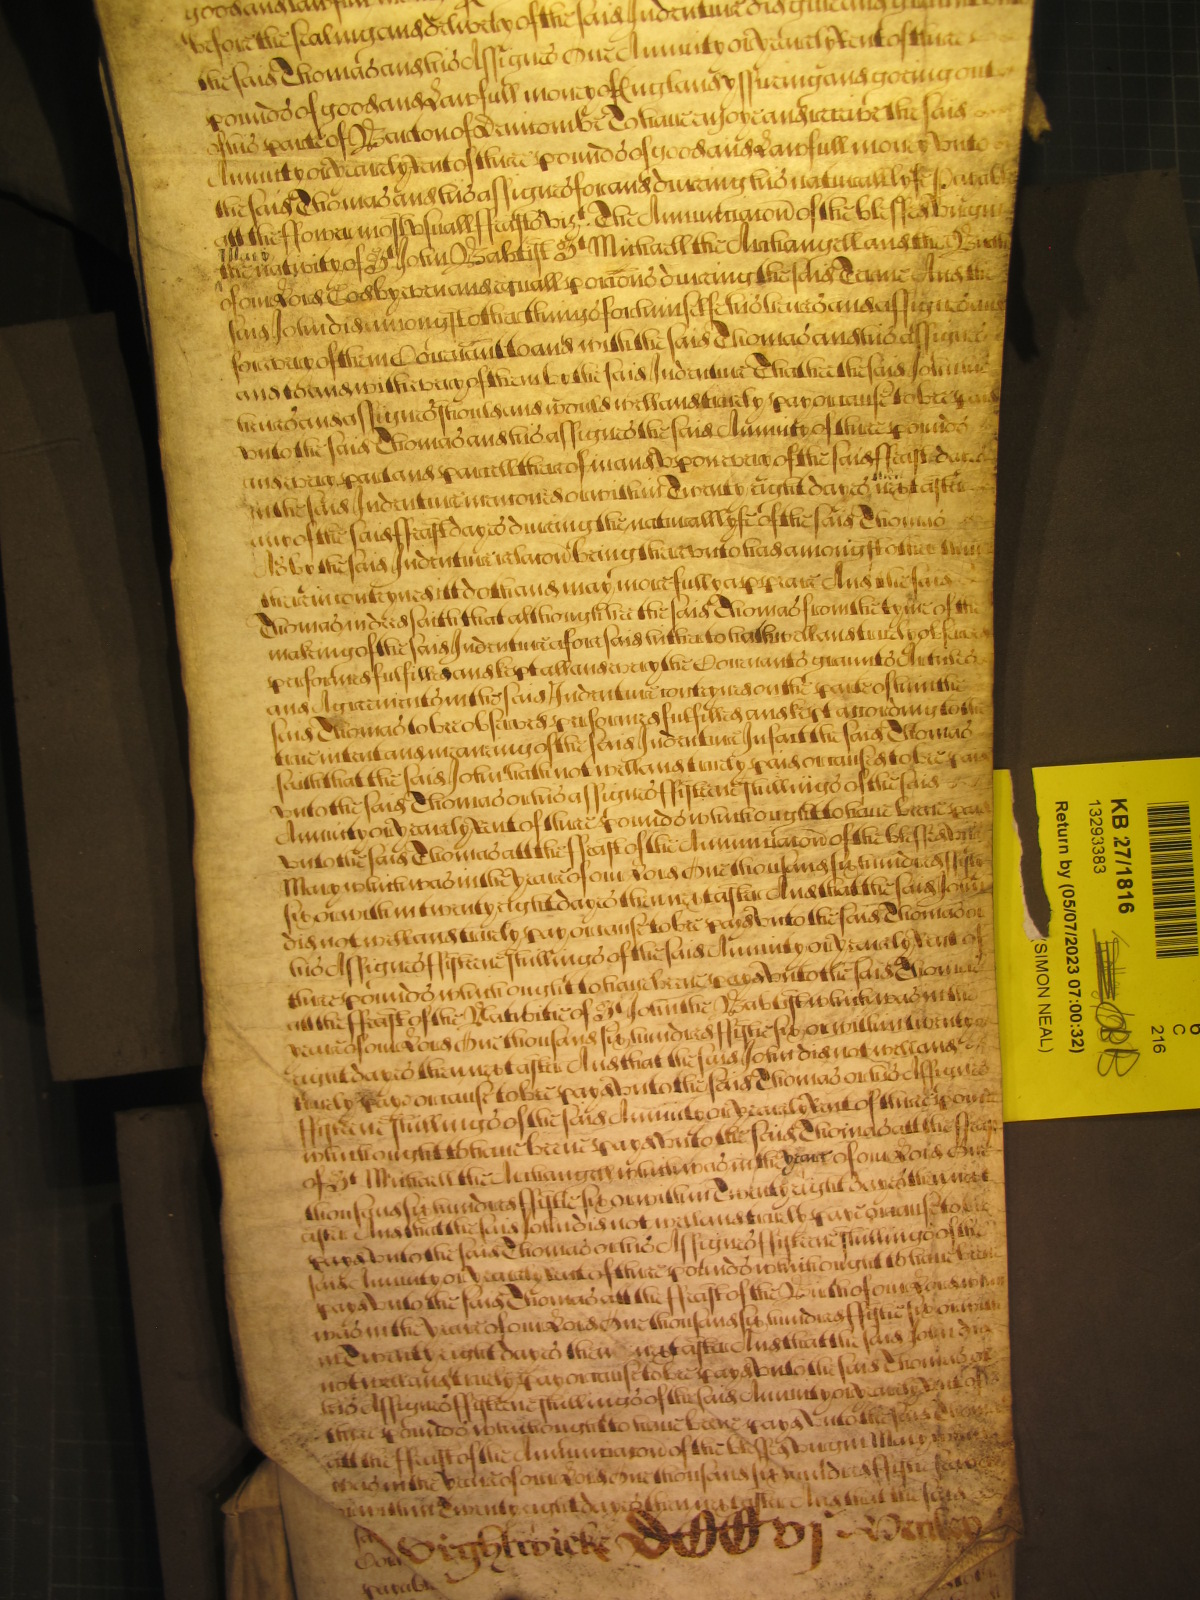 before the sealing and delivery of the said Indenture did give and graunt unto
the said Thomas and his Assignes One Annuity or yearely Rent of three
pounds of good and Lawfull money of England yssuing and goeing out
of his parte of Demombe To have enjoye and receive the said
Annuity or yearely Rent of three pounds of good and Lawfull money vnto
the said Thomas and his assignes for and dureing his naturall lyfe Payable
att the ffower most vsuall ffeasts vizt. The Annunciacon of the blessed virgin
Mary
the nativity of St John Baptist St Michaell the Archangell and the Birth
of our Lord God by even and equall porcions dureing the said Terme And the
said John did amongst other things for himselfe his heires and assignes and
for every of them Covenant to and with the said Thomas and his Assignes
and to and with every of them by the said Indenture That hee the said John his
heires and assignes should and would well and truely pay or cause to bee paid
vnto the said Thomas and his assignes the said Annuity of three pounds
and every part and parcell thereof in and vpon every of the said ffeast dayes
in the said Indenture menconed or within Twenty eight dayes next after
any of the said ffeast dayes dureing the naturall lyfe of the said Thomas
As by the said Indenture relacon being therevnto had amongst other things
therein conteyned itt doth and may more fully appeare And the said
Thomas indeed saith that although hee the said Thomas from the tyme of the
makeing of the said Indenture aforesaid hitherto hath well and truely observed
performed fulfilled and kept all and every the Covenants graunts Articles
and Agreements in the said Indenture conteyned on the parte of him the
said Thomas to bee observed performed fulfilled and kept according to the
true intent and meaneing of the said Indenture In fact the said Thomas
saith that the said John hath not well and truely paid or caused to bee paid
vnto the said Thomas or his assignes ffifteene shillings of the said
Annuity or yearely Rent of three pounds which ought to have beene paid
vnto the said Thomas att the ffeast of the Annunciacon of the blessed virgin
Mary which was in the yeare of our Lord One thousand six hundred ffiftie
six or within twenty eight dayes then next after And that the said John
did not well and truely pay or cause to bee paid vnto the said Thomas or
his Assignes ffifteene shillings of the said Annuity or yearely Rent of
three pounds which ought to have beene payd vnto the said Thomas
att the ffeast of the Nativitie of St John the Baptist which was in the
yeare of our Lord One thousand six hundred ffiftie six or within twenty
eight dayes then next after And that the said John did not well and
truely pay or cause to bee payd vnto the said Thomas or his Assignes
ffifteene shillings of the said Annuity or yearely Rent of three pounds
which ought to have beene payd vnto the said Thomas att the ffeast
of St Michaell the Archangell which was in the yeare of our Lord One
thousand six hundred ffiftie six or within Twenty eight dayes then next
after And that the said John did not well and truely pay or cause to bee
payd vnto the said Thomas or his Assignes ffifteene shillings of the
said Annuity or yearely Rent of three pounds which ought to have beene
payd vnto the said Thomas att the ffeast of the Birth of our Lord which
was in the yeare of our Lord One thousand six hundred ffiftie six or with
in Twenty eight dayes then next after And that the said John did
not well and truely pay or cause to bee payd vnto the said Thomas or
his Assignes ffifteene shillings of the said Annuity or yearely Rent of
three pounds which ought to have beene payd vnto the said Thomas
att the ffeast of the Annunciacon of the blessed virgin Mary which
was in the yeare of our Lord One thousand six hundred ffiftie seaven
or within Twenty eight dayes then next after And that the said
Wightwicke
KB 27/1816
13293383
Return by (05/07/2023 07:00:32)
(SIMON NEAL)
C
216